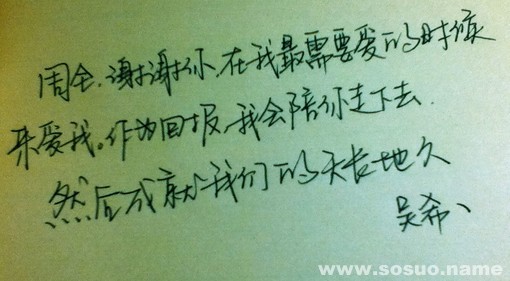 周全.谢谢你.在我最需要爱的时候
来爱我。作为回报,我会陪你走下去.
然后成就我们的天长地久
吴希、
www.sosuo.name